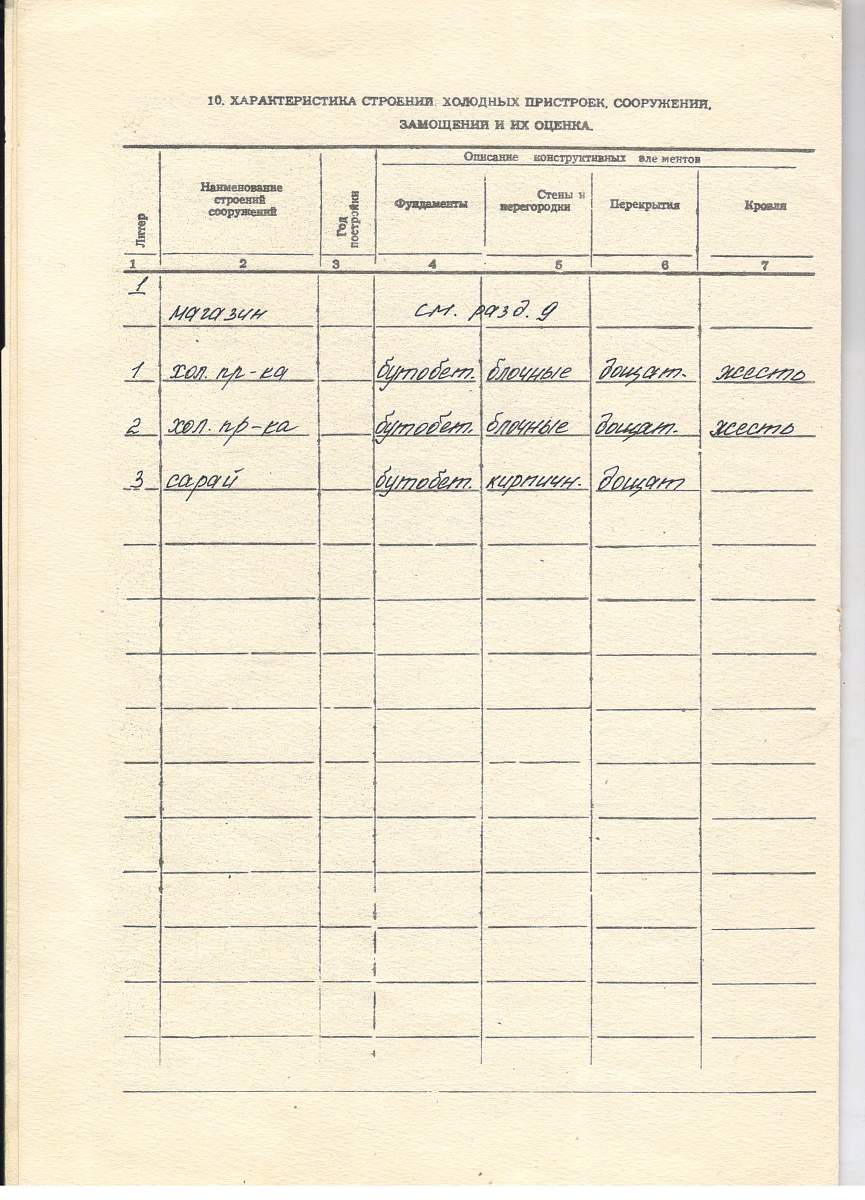 10. ХАРАКТЕРИСТИКА СТРОЕНИЙ. ХОЛОДНЫХ ПРИСТРОЕК, СООРУЖЕНИЙ,
ЗАМОЩЕНИЙ И ИХ ОЦЕНКА.
Описание конструктивных эле ментов
Литер
Наименование
строений
сооружений
Год
постройки
Фундаменты
Стены и
перегородки
Перекрытия
Кровля
1 2 3 4 5 6 7
1
магазин см. разд. 9
1 хол. пр-ка бутобет. блочные дощат. жесть
2 хол. пр-ка бутобет. блочные дощат. жесть
3 сарай бутобет. кирпичн. дощат